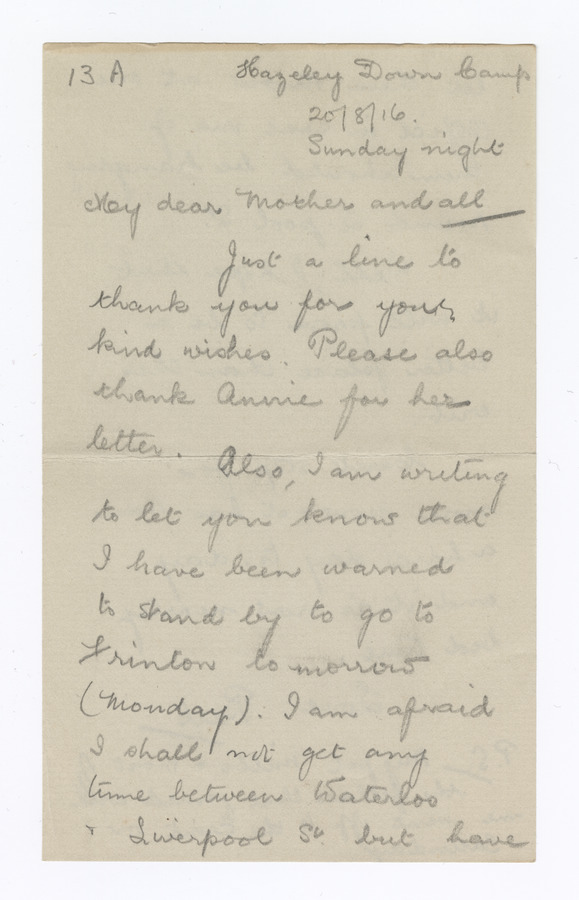 13 A
Hazeley Down Camp
20/8/16.
Sunday night
My dear Mother and all
Just a line to
thank you for your
kind wishes. Please also
thank Annie for her
letter.
Also, I am writing
to let you know that
I have been warned
to stand by to go to
Frinton to morrow
(Monday). I am afraid
I shall not get any
time between Waterloo
+ Liverpool St. but have